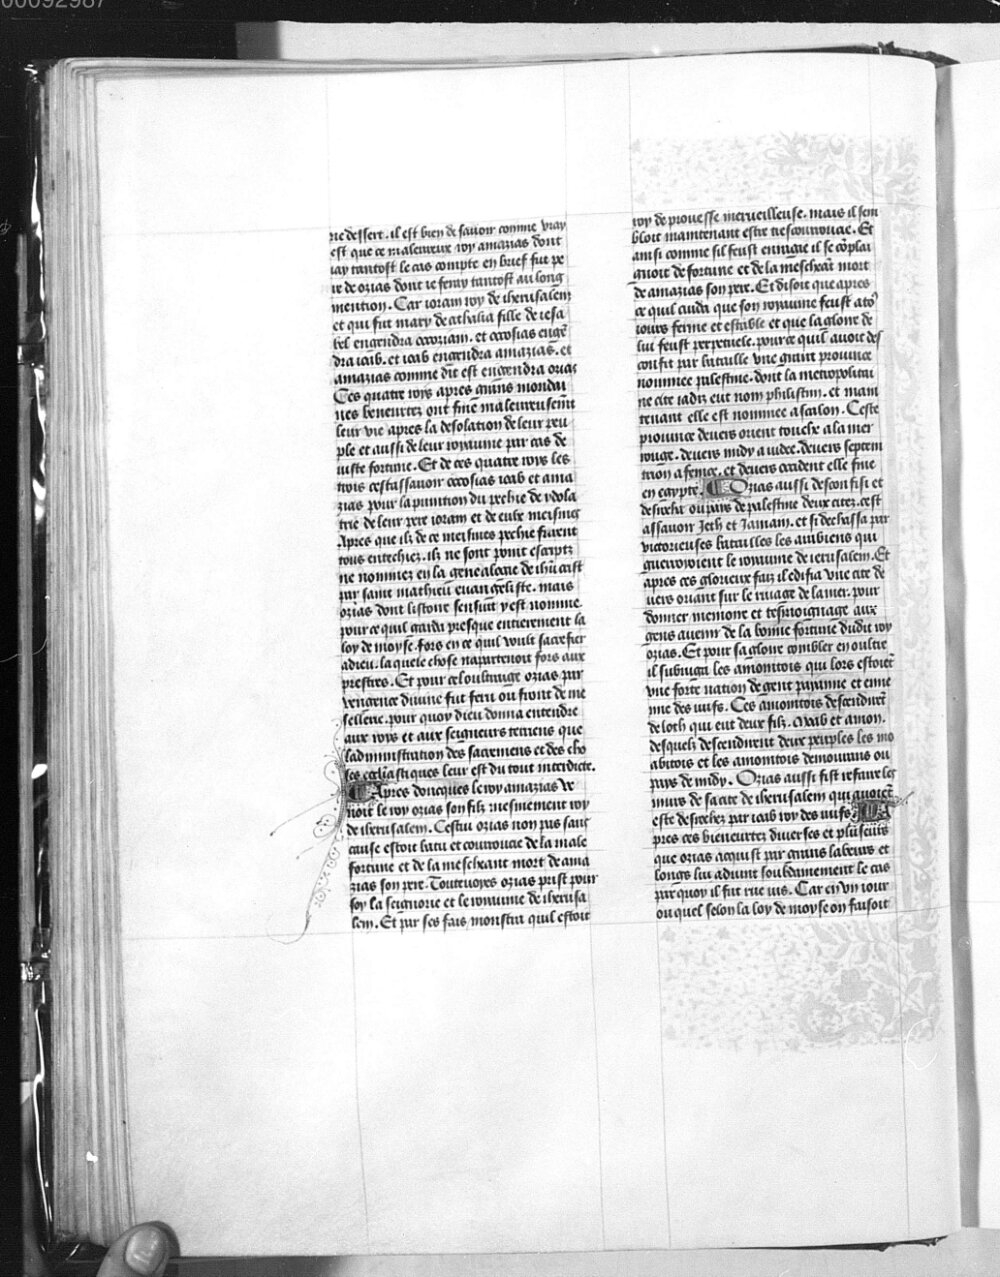 00092987
ne dessert. il est bien de sauoir comme vray
est que ce maleureux roy amazias dont
iay tantost le cas compte en brief fut pe
re de ozias dont ie feray tantost au long
mention. Car ioram roy de iherusalem
et qui fut mary de athalia fille de iesa
bel engendra ocoziam. et ocosias enge
dra ioab. et ioab engendra amazias. et
amazias comme dit est engendra ozias
Ces quatre roys apres grans mondai
nes beneurtez ont fine maleureusemt
leur vie apres la desolation de leur peu
ple et aussi de leur royaume par cas de
iuste fortune. Et de ces quatre roys les
trois cestassauoir ocosias ioab et ama
zias pour la punition du pechie de ydola
trie de leur pere ioram et de eulx mesmes
Apres que ilz de ce mesmes pechie furent
tous entechiez. ilz ne sont point escriptz
ne nommez en la genealogie de ihu crist
par saint mathieu euangeliste. mais
ozias dont listoire sensuit y est nomme.
pour ce quil garda presque entierement la
loy de moyse. fors en ce quil voult sacrefier
a dieu. la quele chose napartenoit fors aux
prestres. Et pour ce loultraige ozias par
vengence diuine fut feru ou front de me
sellerie. pour quoy dieu donna entendre
aux roys et aux seigneurs terriens que
ladministration des sacremens et des cho
ses ecclesiastiques leur est du tout interdicte.
Apres doncques le roy amazias ve
noit le roy ozias son filz mesmement roy
de iherusalem. Cestui ozias non pas sans
cause estoit batu et courroucie de la male
fortune et de la meschant mort de ama
zias son pere. Toutevoyes ozias prist pour
soy la seignorie et le royaume de iherusa
lem. Et par ses fais monstra quil estoit
roy de prouesse merueilleuse. mais il sem
bloit maintenant estre tres courroucie. Et
ainsi comme sil feust enragie il se complai
gnoit de fortune et de la meschant mort
de amazias son pere. Et disoit que apres
ce quil cuida que son royaume feust a to9
iours ferme et estable et que la gloire de
lui feust perpetuele. pour ce quil auoit des
confit par bataille vne grant prouince
nommee palestine. dont la metropolitai
ne cite iadiz eut nom philistim. et main
tenant elle est nommee ascalon. Ceste
prouince deuers orient touche a la mer
rouge. deuers midy a iudee. deuers septem
trion a fenice. et deuers occident elle fine
en egypte. Ozias aussi desconfist et
destruit ou pays de palestine deux citez. cest
assauoir Jeth et Jamiam. et si dechassa par
victorieuses batailles les arabiens qui
guerroioient le royaume de ierusalem. Et
apres ces glorieux faiz il edifia vne cite de
uers oriant sur le riuage de la mer. pour
donner memoire et tesmoignage aux
gens auenir de la bonne fortune dudit roy
ozias. Et pour sa gloire combler en oultre
il subiuga les amonitois qui lors estoiet
vne forte nation de gent payenne et enne
mie des iuifs. Ces amonitois descendiret
de loth qui eut deux filz. Moab et amon.
desquelz descendirent deux peuples les mo
abitois et les amonitois demourans ou
pays de midy. Ozias aussi fist refaire les
murs de sa cite de iherusalem qui auoiet
este destruiz par ioab roy des iuifs. A
pres ces bieneurtez diuerses et pluseurs
que ozias acquist par grans labeurs et
longs lui aduint soubdainement le cas
par quoy il fut rue ius. Car en vn iour
ou quel selon la loy de moyse on faisoit